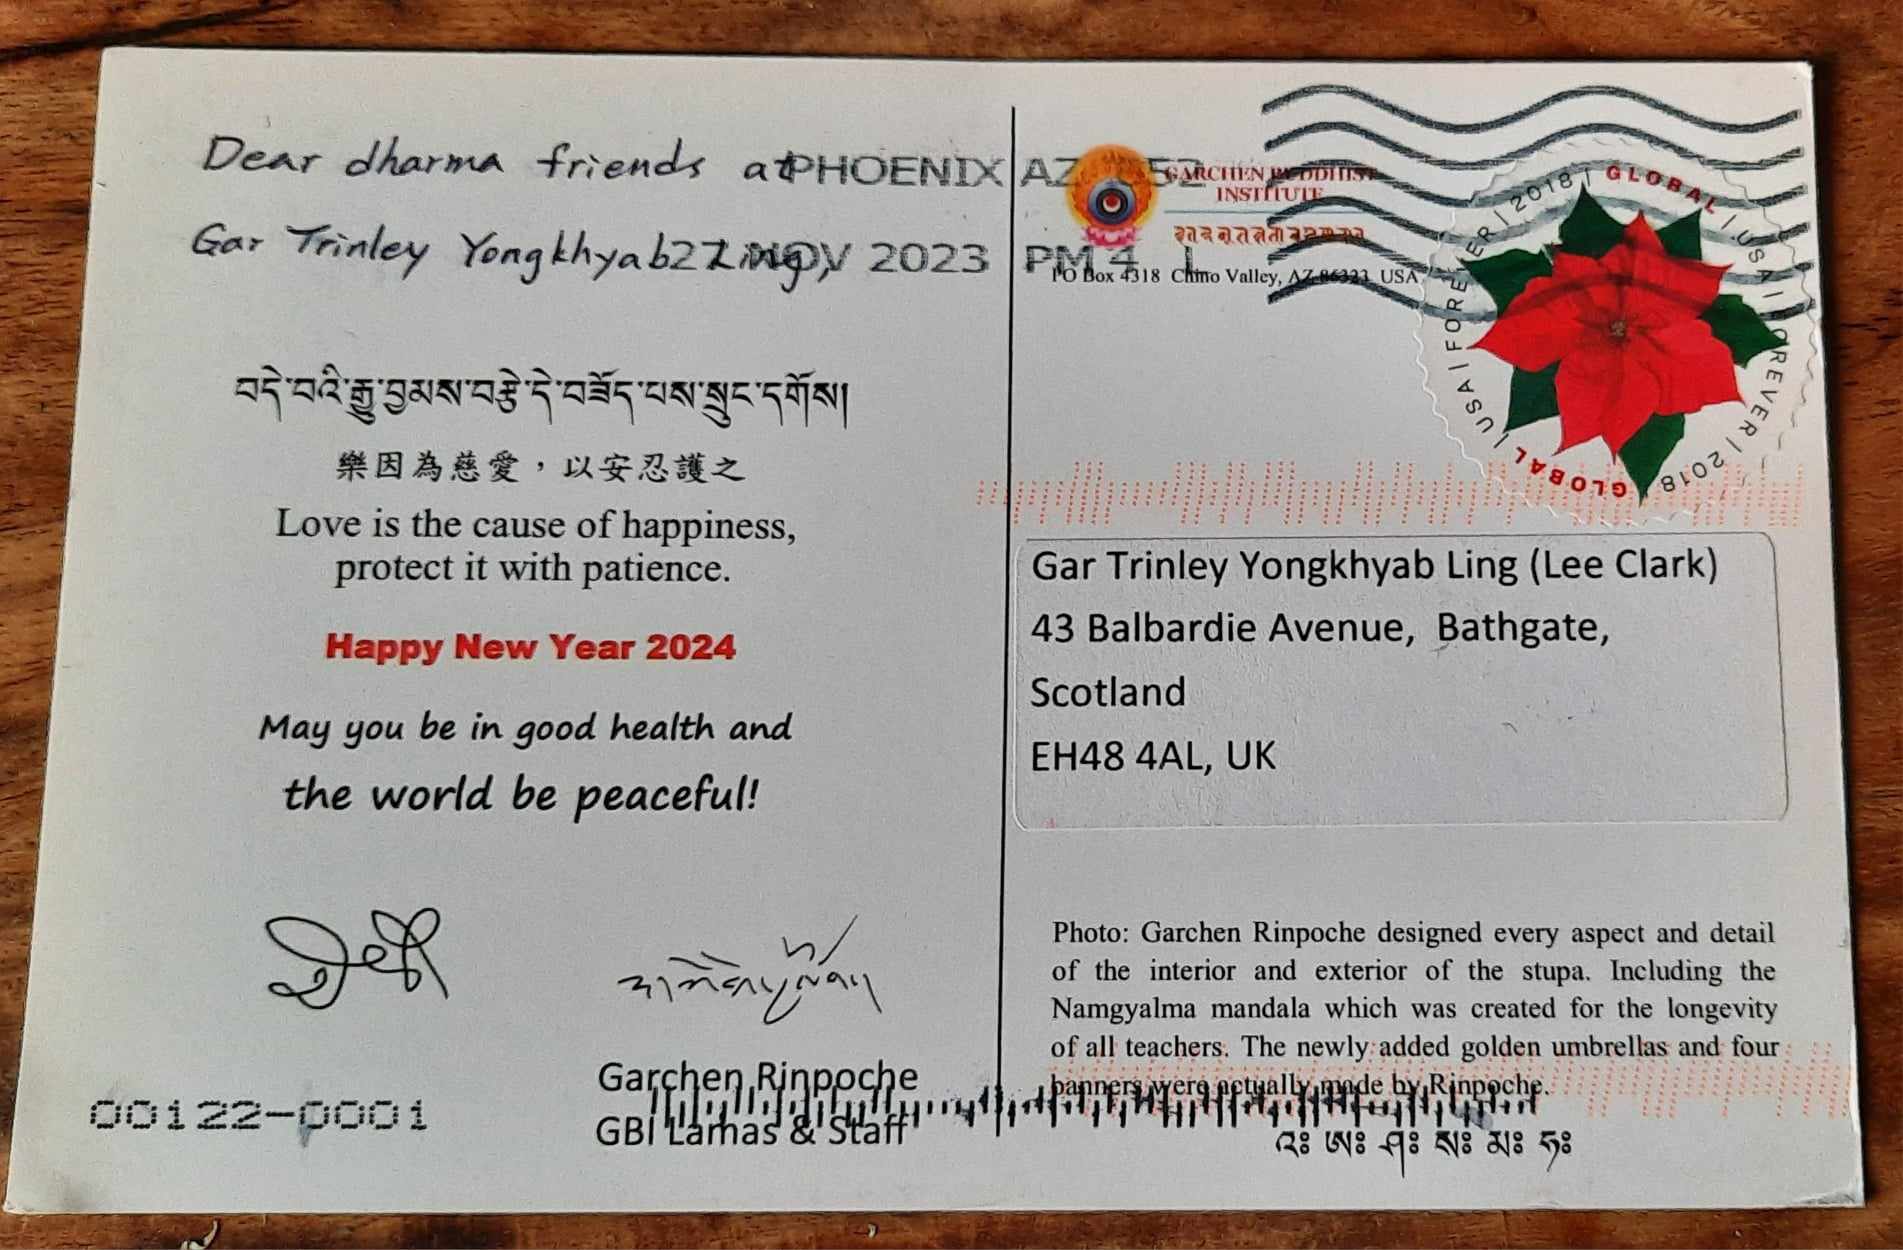 Dear dharma friends at
Gar Trinley Yongkhyab Ling,
བདེ་བའི་རྒྱུ་བྱམས་བརྩེ་དེ་བཟོད་པས་སྲུང་དགོས།
樂因為慈愛，以安忍護之
Love is the cause of happiness,
protect it with patience.
Happy New Year 2024
May you be in good health and
the world be peaceful!
Garchen Rinpoche
GBI Lamas & Staff
00122-0001
PHOENIX AZ 852
27 NOV 2023 PM 4 L
GARCHEN BUDDHIST
INSTITUTE
PO Box 4318 Chino Valley, AZ 86323 USA
GLOBAL | USA | FOREVER | 2018 | GLOBAL | USA | FOREVER | 2018 |
Gar Trinley Yongkhyab Ling (Lee Clark)
43 Balbardie Avenue, Bathgate,
Scotland
EH48 4AL, UK
Photo: Garchen Rinpoche designed every aspect and detail
of the interior and exterior of the stupa. Including the
Namgyalma mandala which was created for the longevity
of all teachers. The newly added golden umbrellas and four
banners were actually made by Rinpoche.
འཿ ཨཿ ཤཿ སཿ མཿ ཧཿ